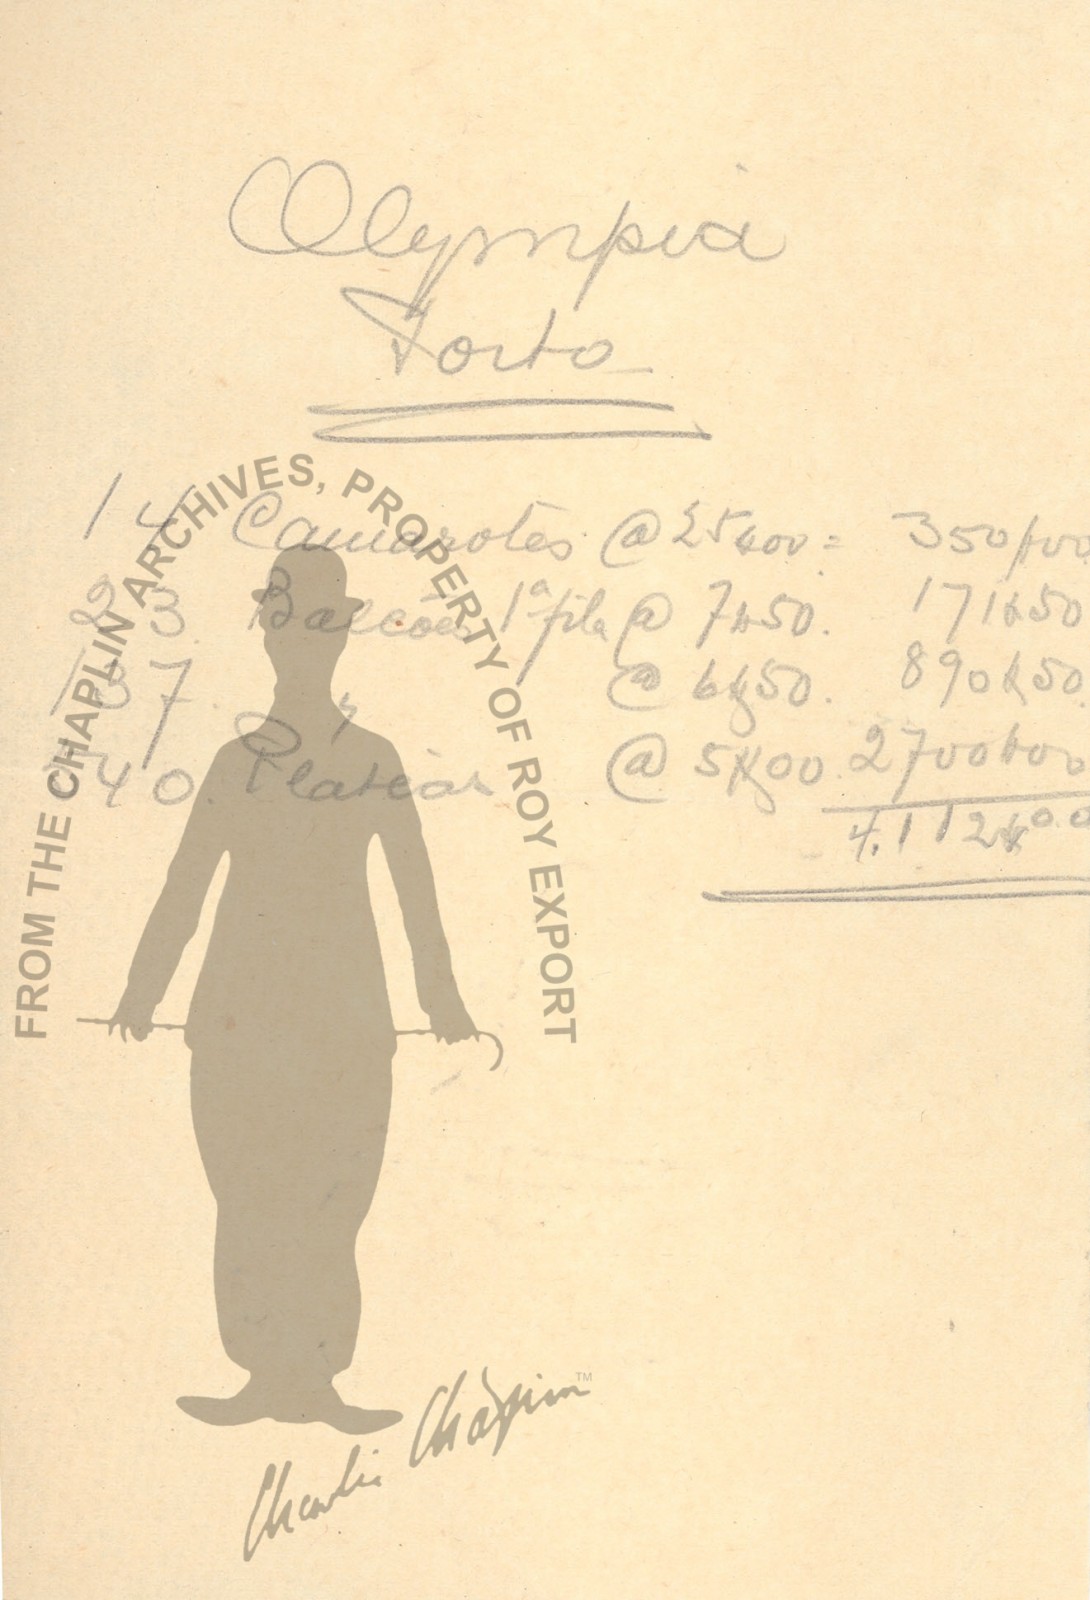 Olympia
Porto
14 Camarotes @ 25$00 = 350$00
23 Balcões 1ª fila @ 7$50. 171$50
137 " @ 6$50. 890$50
540 Plateias @ 5$00 2700$00
4.112$00
FROM THE CHAPLIN ARCHIVES, PROPERTY OF ROY EXPORT
Charlie Chaplin™